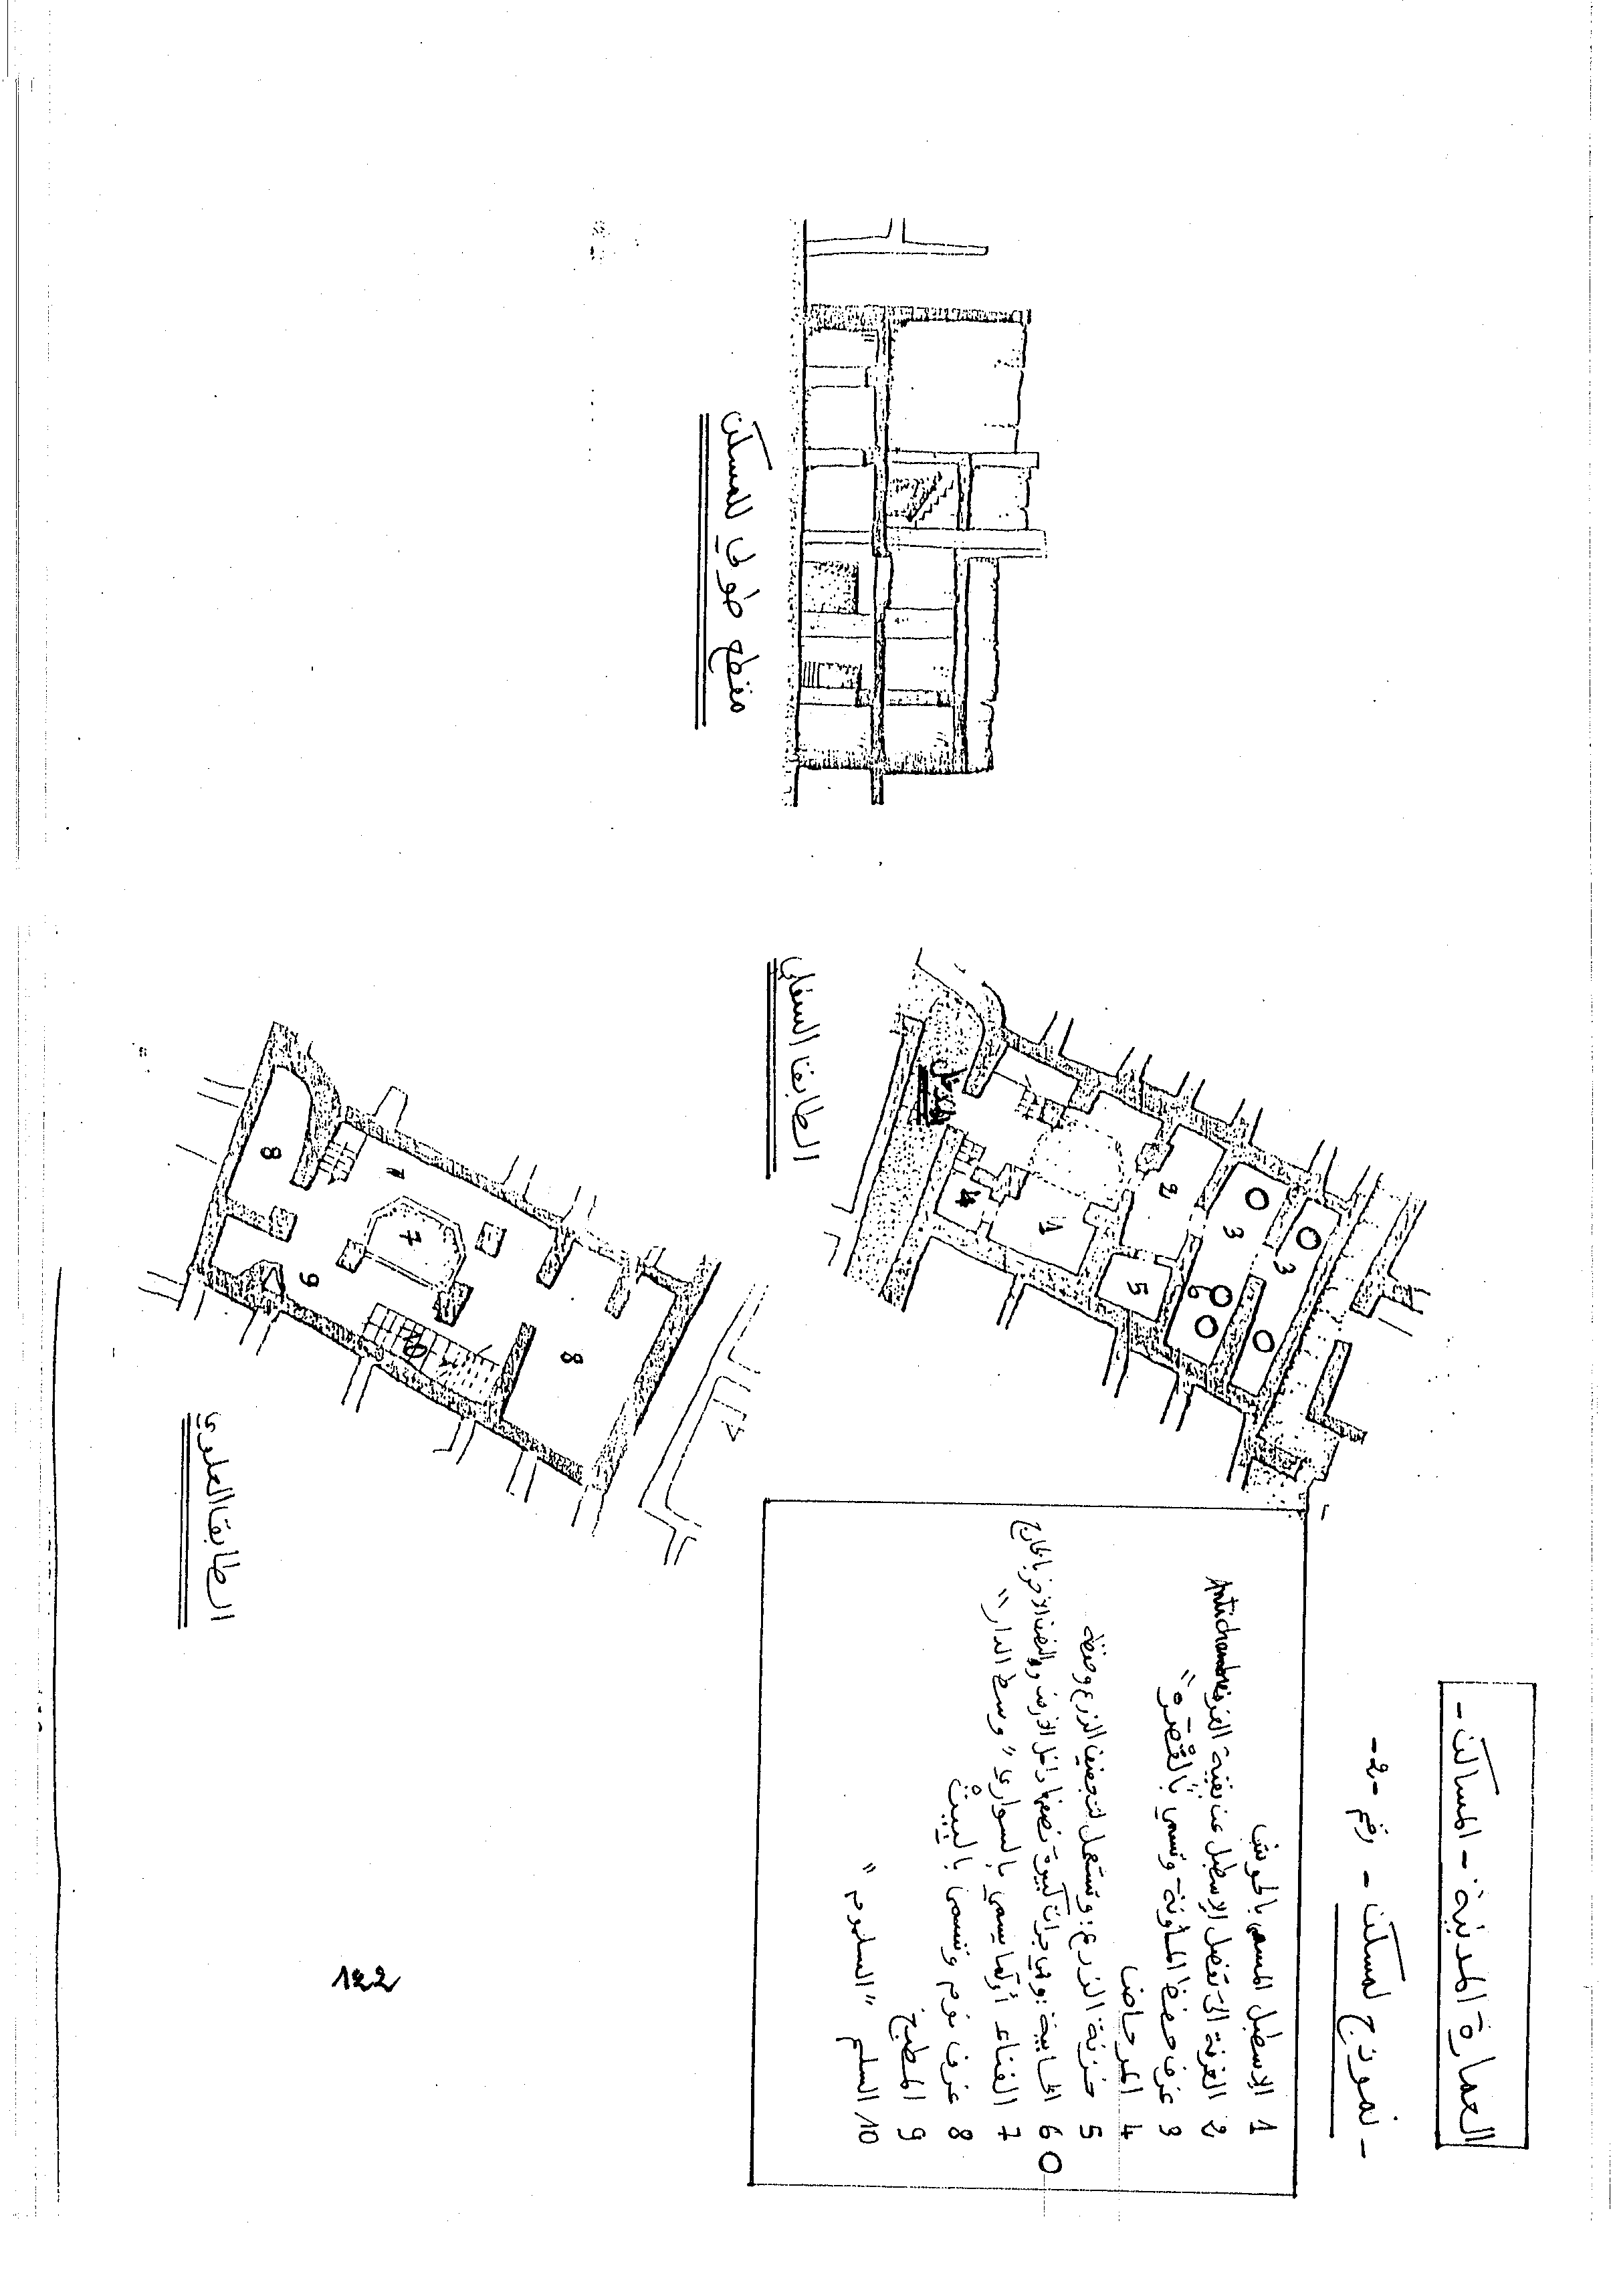 العمارة المدنية - المساكن -
- نموذج لمسكن - رقم - 2 -
1 الإسطبل المسمى بالحوش
2 الغرفة التي تفصل الإسطبل عن بقية الغرف Antichambre
3 غرف حفظ المأونة وتسمى بالقصره"
4 المرحاض
5 خزنة الزرع: وتستعمل لتجفيف الزرع وحفظه
6 الخابية: وهي جرات كبيرة نصفها داخل الأرض والنصف الآخر بالخارج
7 الفناء أو ما يسمى بالسواري "وسط الدار"
8 غرف نوم وتسمى بالبيت
9 المطبخ
10/ السلم "السلوم"
الطابق السفلي
مدخل
1
2
3
3
4
5
6
الطابق العلوي
7
7
8
8
9
مقطع طولي للمسكن
122